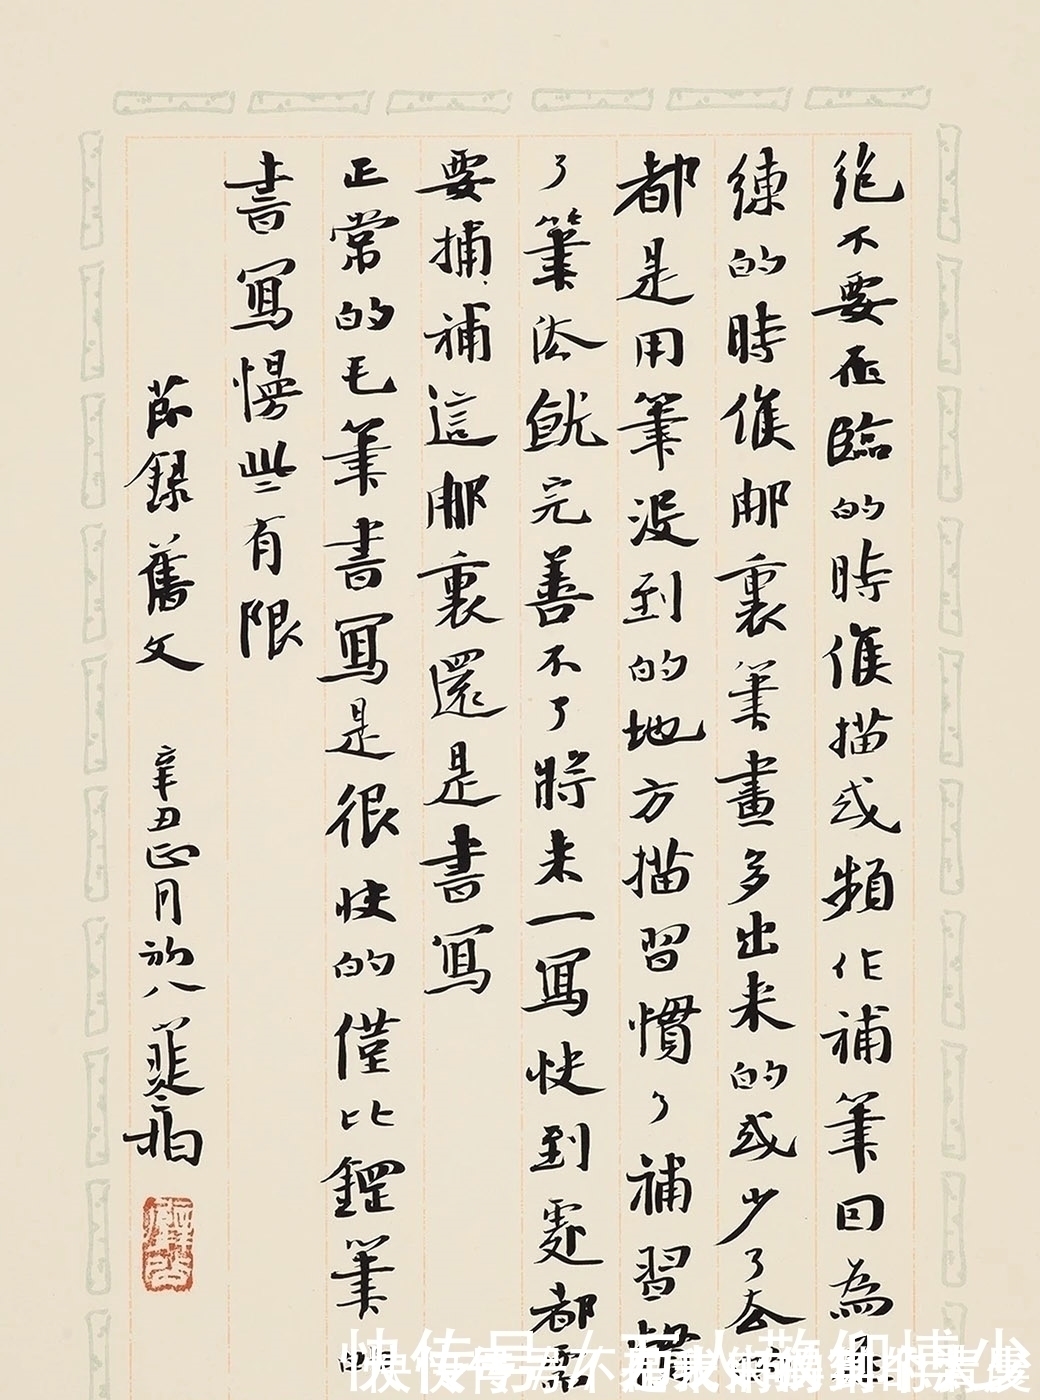 絶不要在臨的時候描或頻作補筆因為在
練的時候那裏筆畫多出來的或少了去
都是用筆没到的地方描習慣了補習慣
了筆法就完善不了將来一寫快到處都需
要捕補這那裏還是書寫
正常的毛筆書寫是很快的僅比鋼筆
書寫慢些有限
節録舊文 辛丑正月初八
快传号/万人敬仰博少